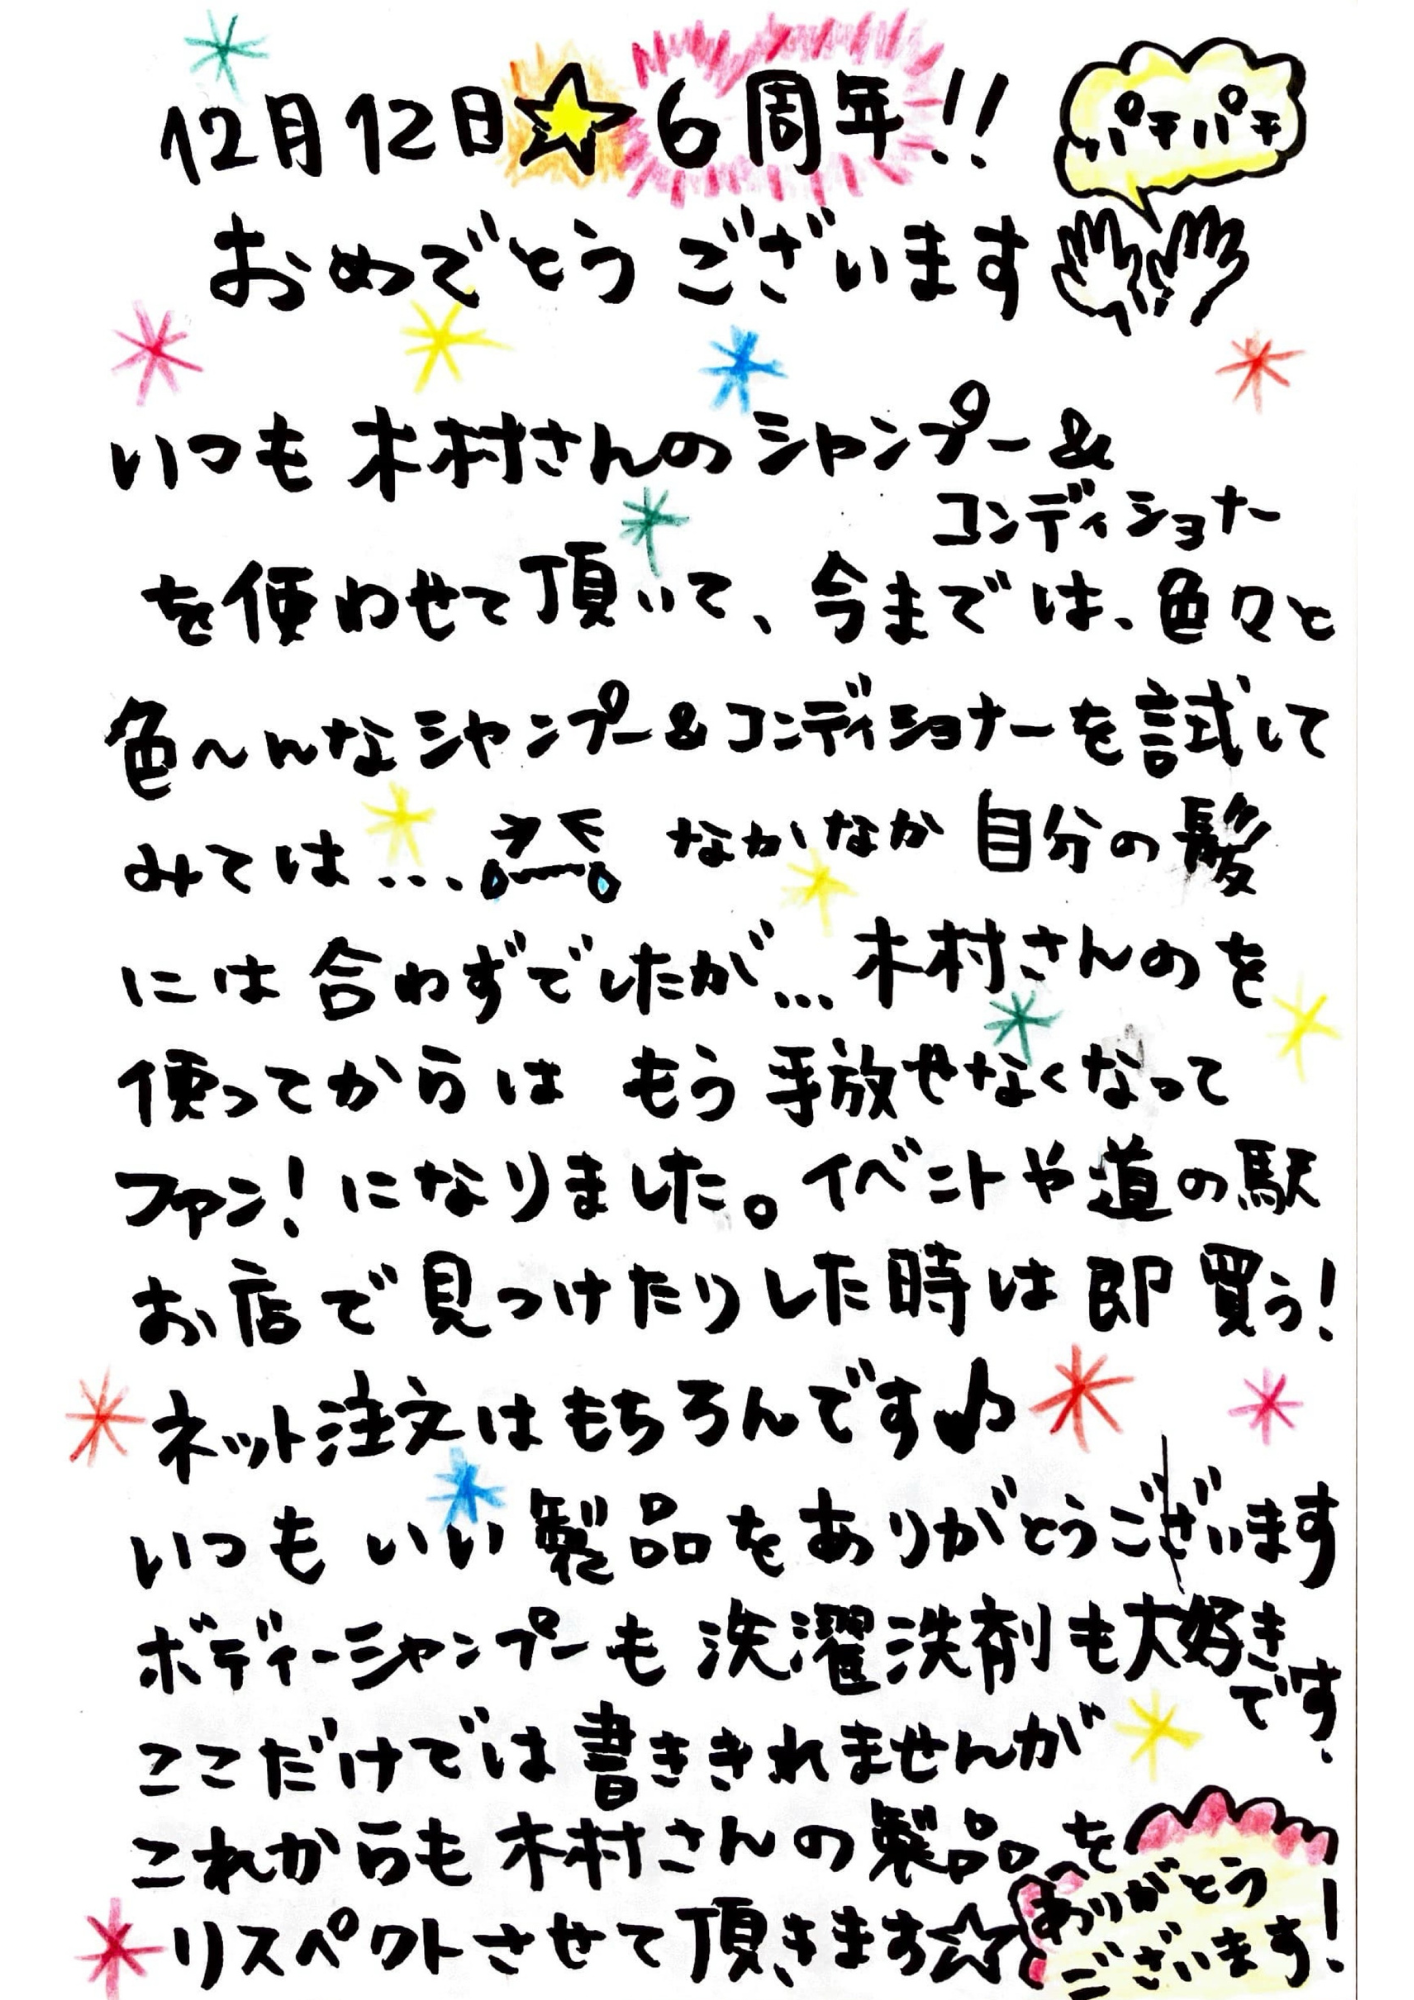 12月12日☆6周年!!
パチパチ
おめでとうございます
いつも木村さんのシャンプー&
コンディショナー
を使わせて頂いて、今までは、色々と
色〜んなシャンプー&コンディショナーを試して
みては... なかなか自分の髪
には合わずでしたが...木村さんのを
使ってからは もう手放せなくなって
ファン!になりました。イベントや道の駅
お店で見つけたりした時は即買う!
ネット注文はもちろんです♪
いつもいい製品をありがとうございます
ボディーシャンプーも洗濯洗剤も大好き
です
ここだけでは書ききれませんが
これからも木村さんの製品を
リスペクトさせて頂きます☆
ありがとう
ございます!